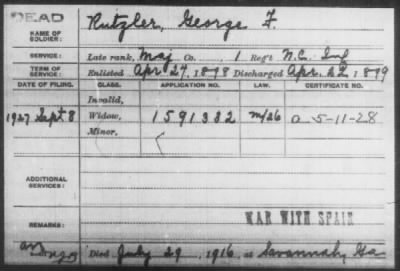 DEAD
NAME OF SOLDIER: Rutzler, George F.
SERVICE: Late rank, Maj Co. 1 Reg't N.C. Inf
TERM OF SERVICE: Enlisted Apr 27, 1898 Discharged Apr. 22, 1899
DATE OF FILING. CLASS. APPLICATION NO. LAW. CERTIFICATE NO.
Invalid,
1927 Sept. 8 Widow, 1591382 M/26 a 5-11-28
Minor,
ADDITIONAL SERVICES:
WAR WITH SPAIN
REMARKS:
Died July 29, 1916, at Savannah, Ga